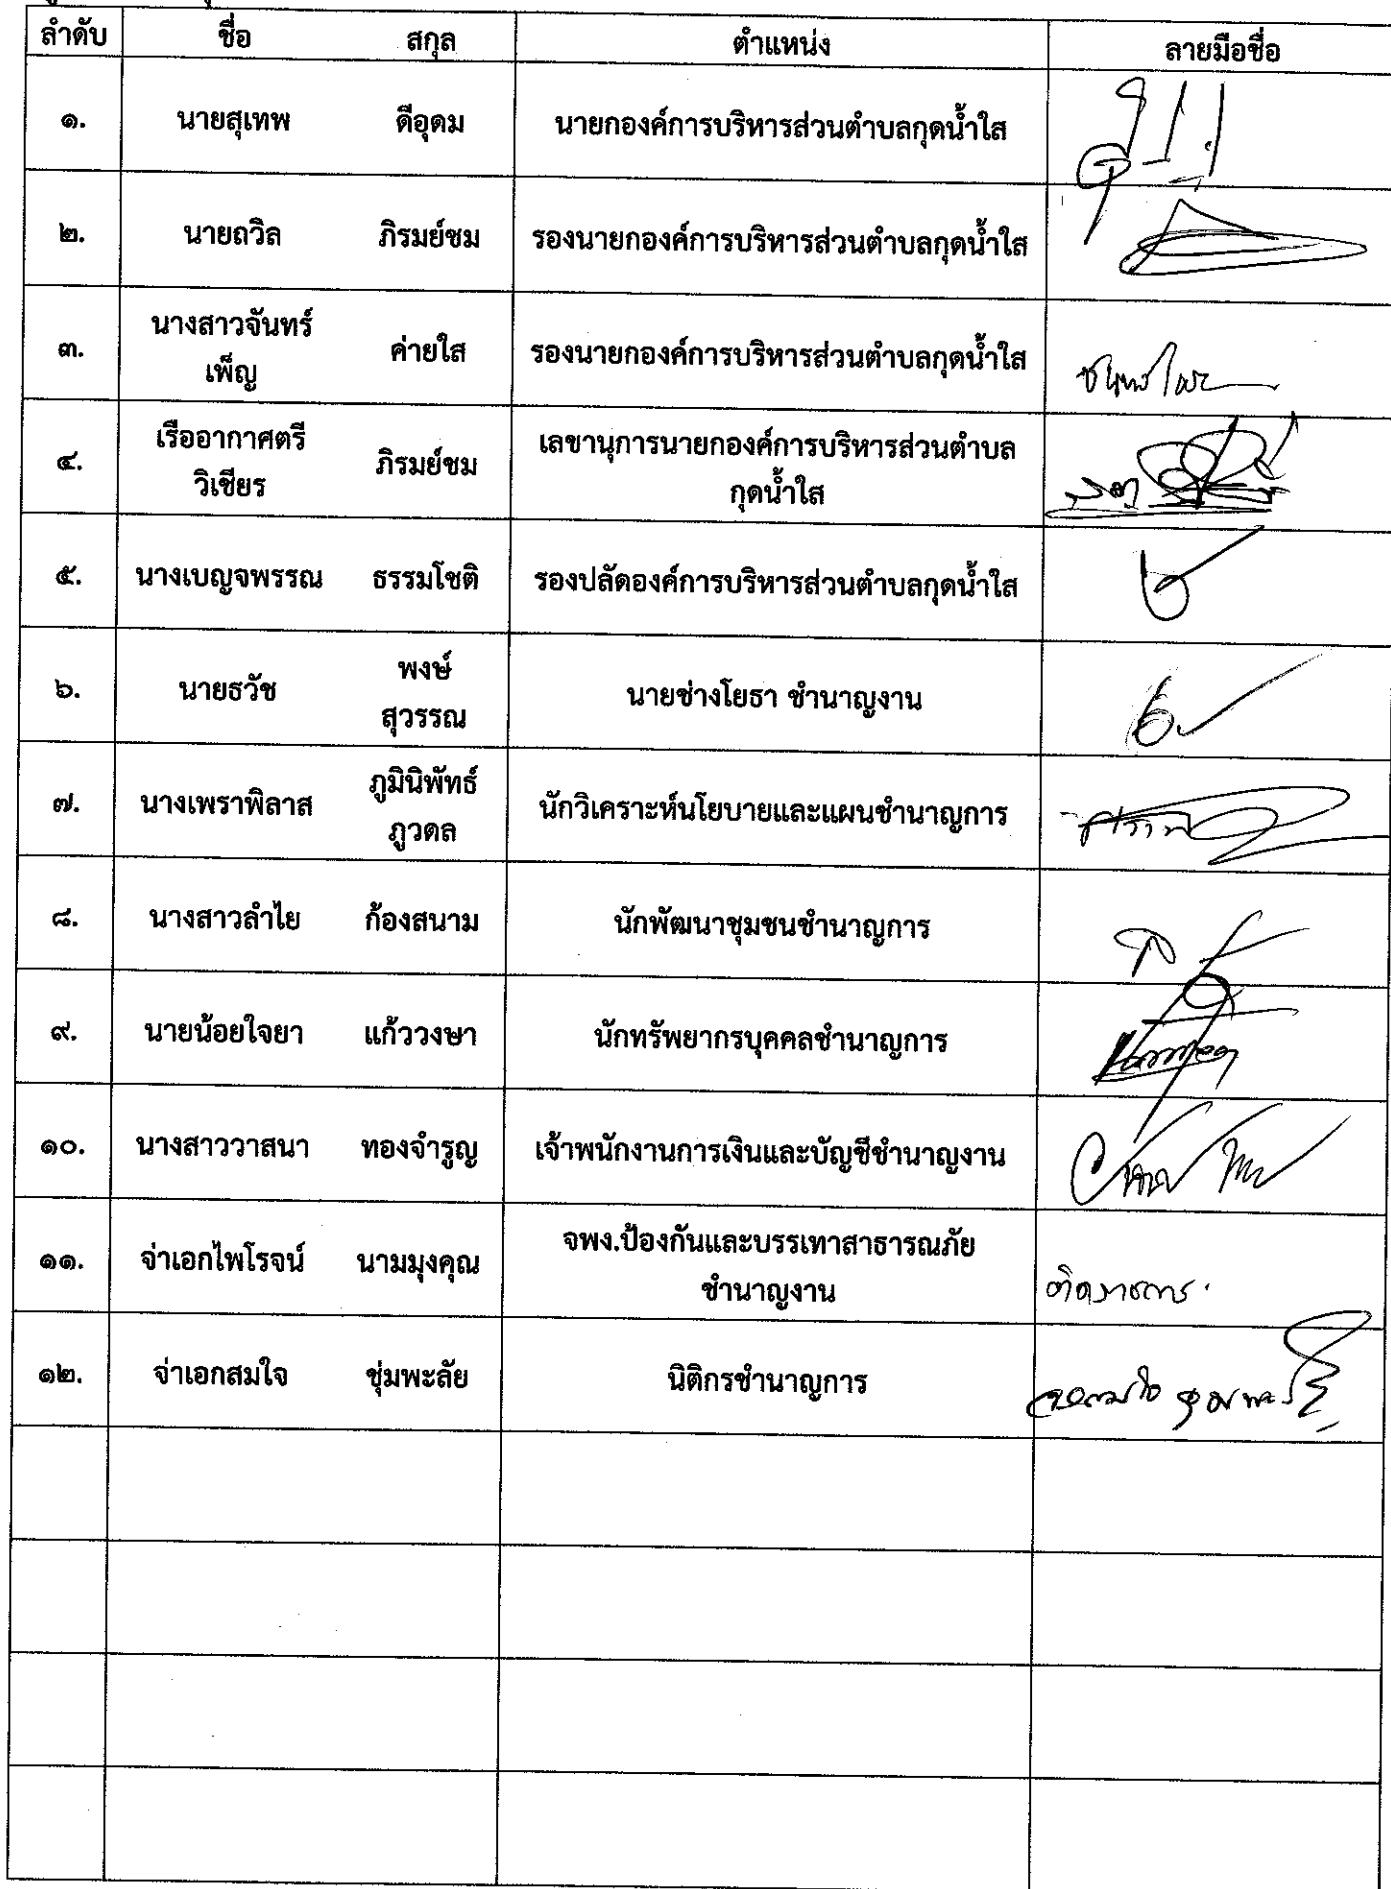 ลำดับ ชื่อ สกุล ตำแหน่ง ลายมือชื่อ
๑. นายสุเทพ ดีอุดม นายกองค์การบริหารส่วนตำบลกุดน้ำใส
๒. นายถวิล ภิรมย์ชม รองนายกองค์การบริหารส่วนตำบลกุดน้ำใส
นางสาวจันทร์
๓. ค่ายใส รองนายกองค์การบริหารส่วนตำบลกุดน้ำใส
เพ็ญ
เรืออากาศตรี เลขานุการนายกองค์การบริหารส่วนตำบล
๔. ภิรมย์ชม
วิเชียร กุดน้ำใส
๕. นางเบญจพรรณ ธรรมโชติ รองปลัดองค์การบริหารส่วนตำบลกุดน้ำใส
พงษ์
๖. นายธวัช นายช่างโยธา ชำนาญงาน
สุวรรณ
ภูมินิพัทธ์
๗. นางเพราพิลาส นักวิเคราะห์นโยบายและแผนชำนาญการ
ภูวดล
๘. นางสาวลำไย ก้องสนาม นักพัฒนาชุมชนชำนาญการ
๙. นายน้อยใจยา แก้ววงษา นักทรัพยากรบุคคลชำนาญการ
๑๐. นางสาววาสนา ทองจำรูญ เจ้าพนักงานการเงินและบัญชีชำนาญงาน
จพง.ป้องกันและบรรเทาสาธารณภัย
๑๑. จ่าเอกไพโรจน์ นามมุงคุณ
ชำนาญงาน ติดราชการ
๑๒. จ่าเอกสมใจ ชุ่มพะลัย นิติกรชำนาญการ